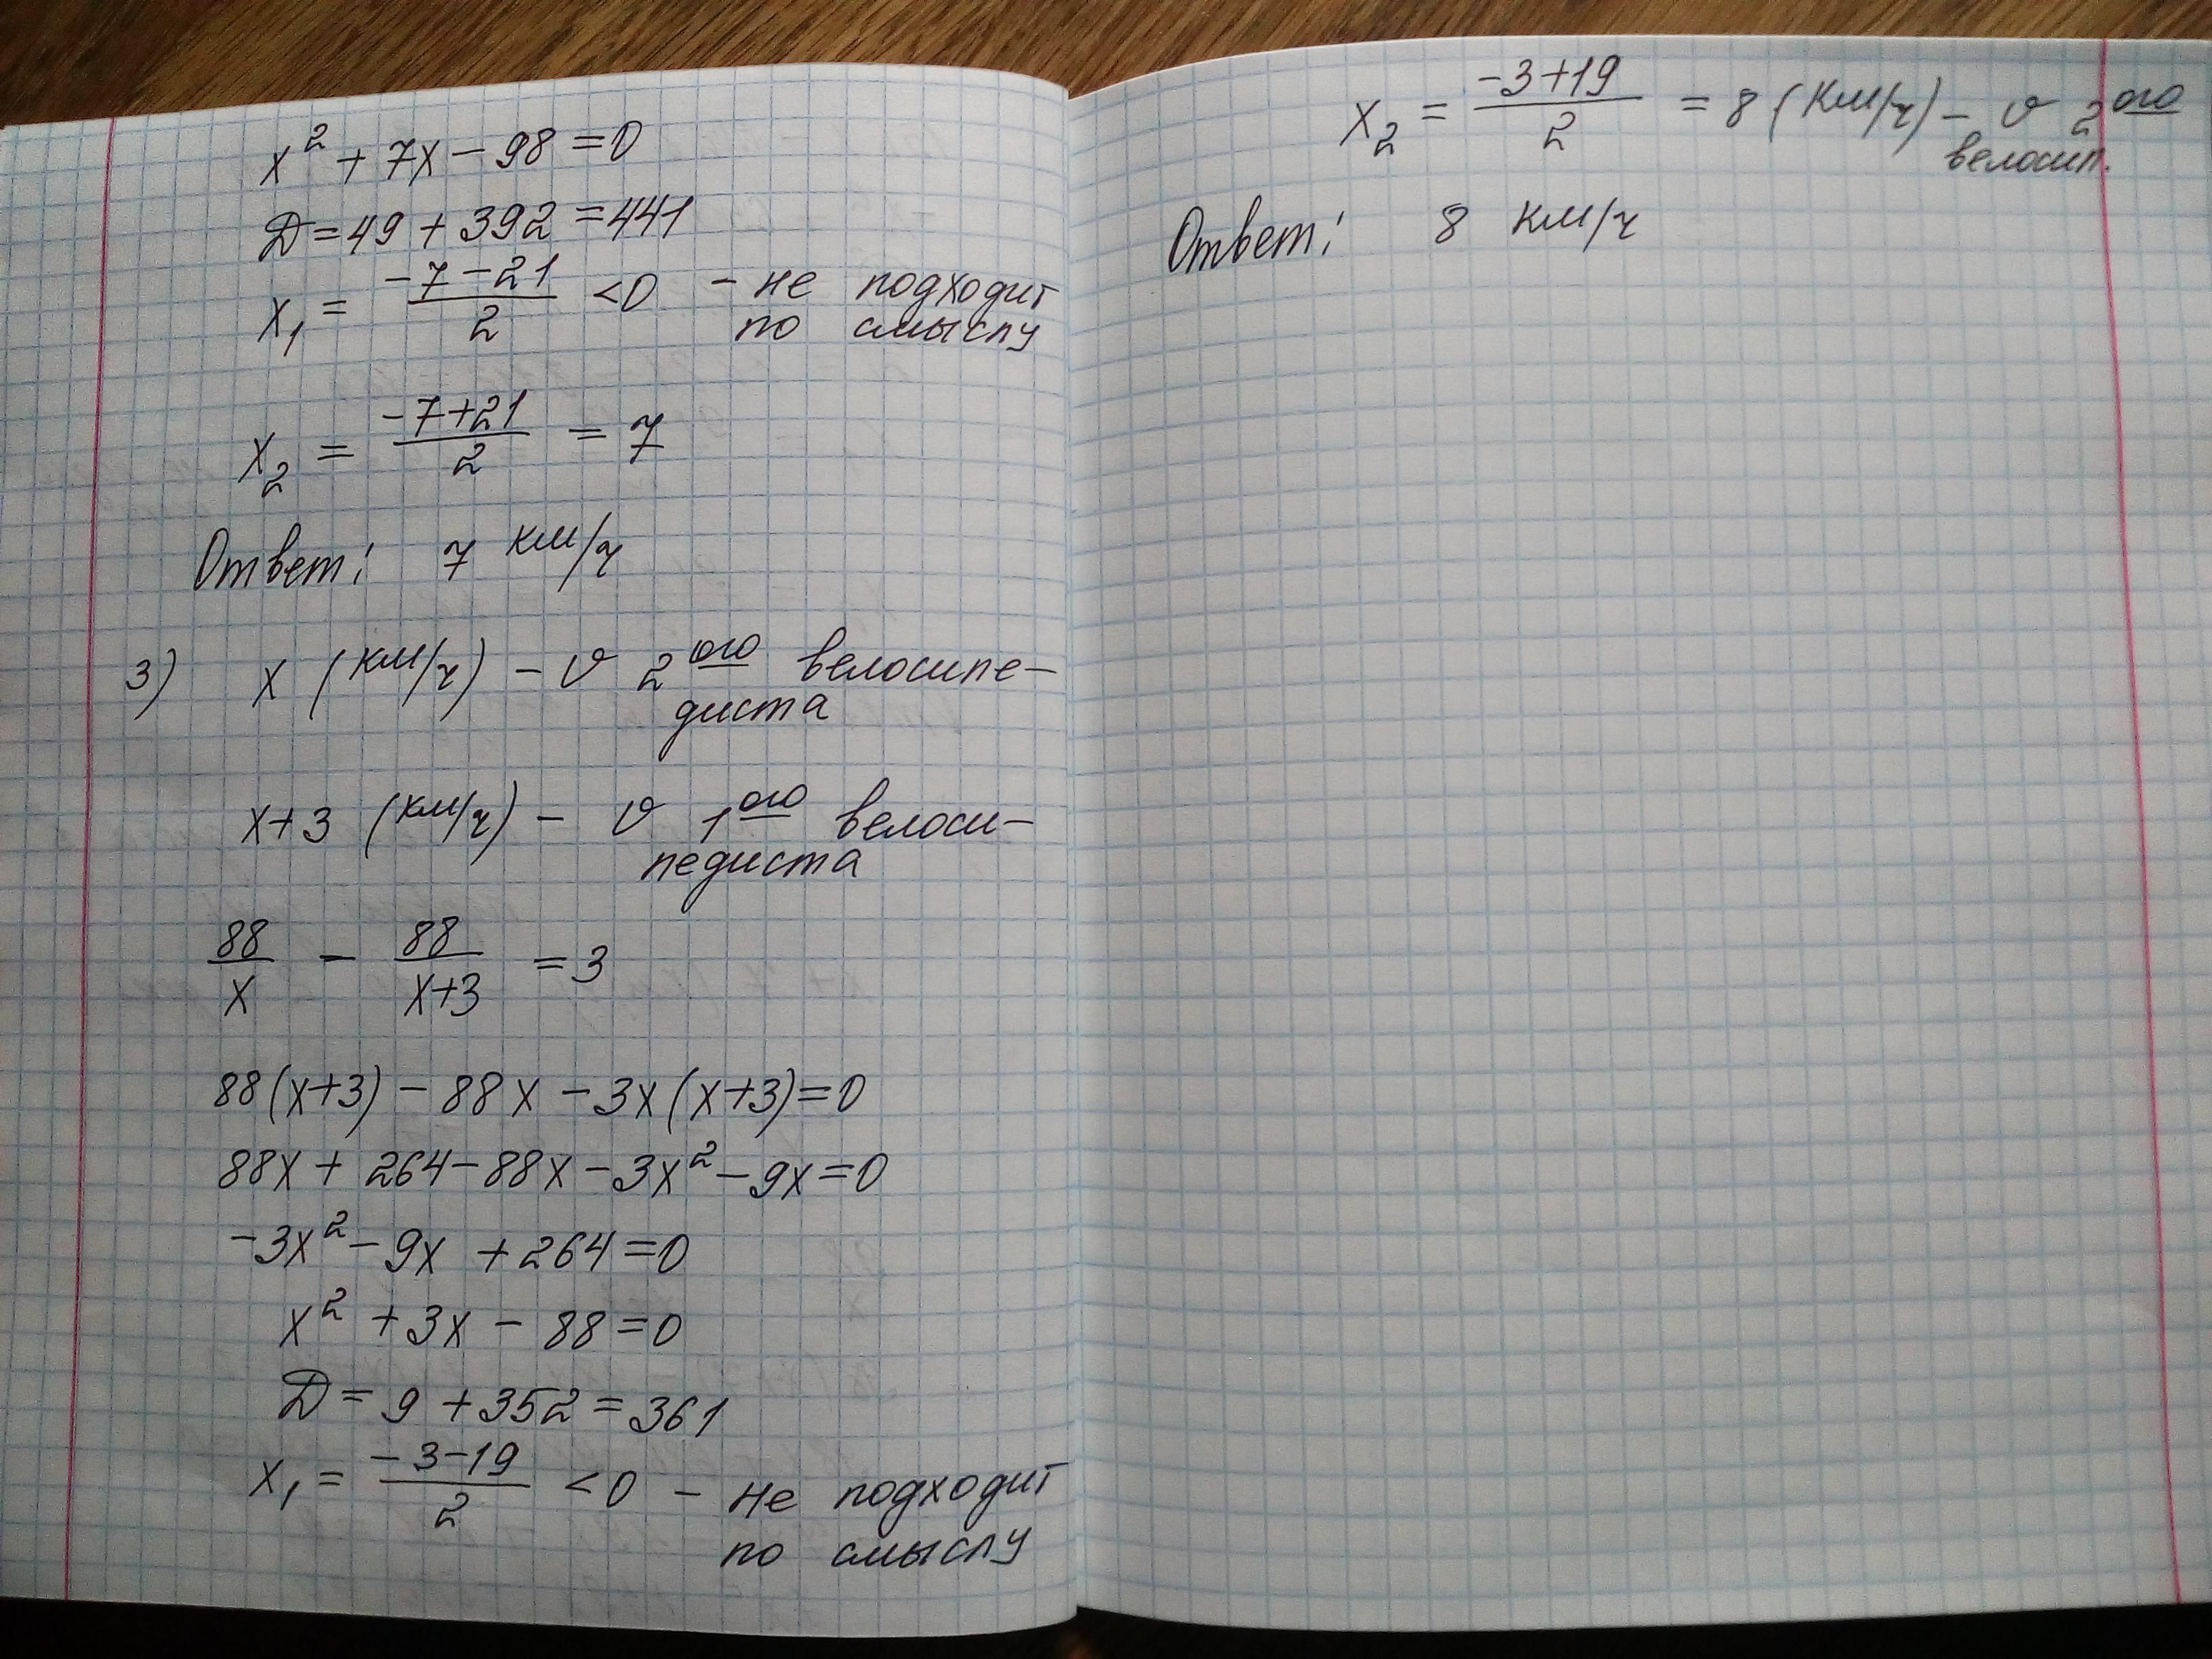 x² + 7x − 98 = 0
D = 49 + 392 = 441
x₁ = (−7−21)/2 < 0 − не подходит
по смыслу
x₂ = (−7+21)/2 = 7
Ответ: 7 км/ч
3) x (км/ч) − v 2ого велосипе-
диста
x+3 (км/ч) − v 1ого велоси-
педиста
88/x − 88/(x+3) = 3
88(x+3) − 88x − 3x(x+3) = 0
88x + 264 − 88x − 3x² − 9x = 0
−3x² − 9x + 264 = 0
x² + 3x − 88 = 0
D = 9 + 352 = 361
x₁ = (−3−19)/2 < 0 − не подходит
по смыслу
x₂ = (−3+19)/2 = 8 (км/ч) − v 2ого
велосип.
Ответ: 8 км/ч